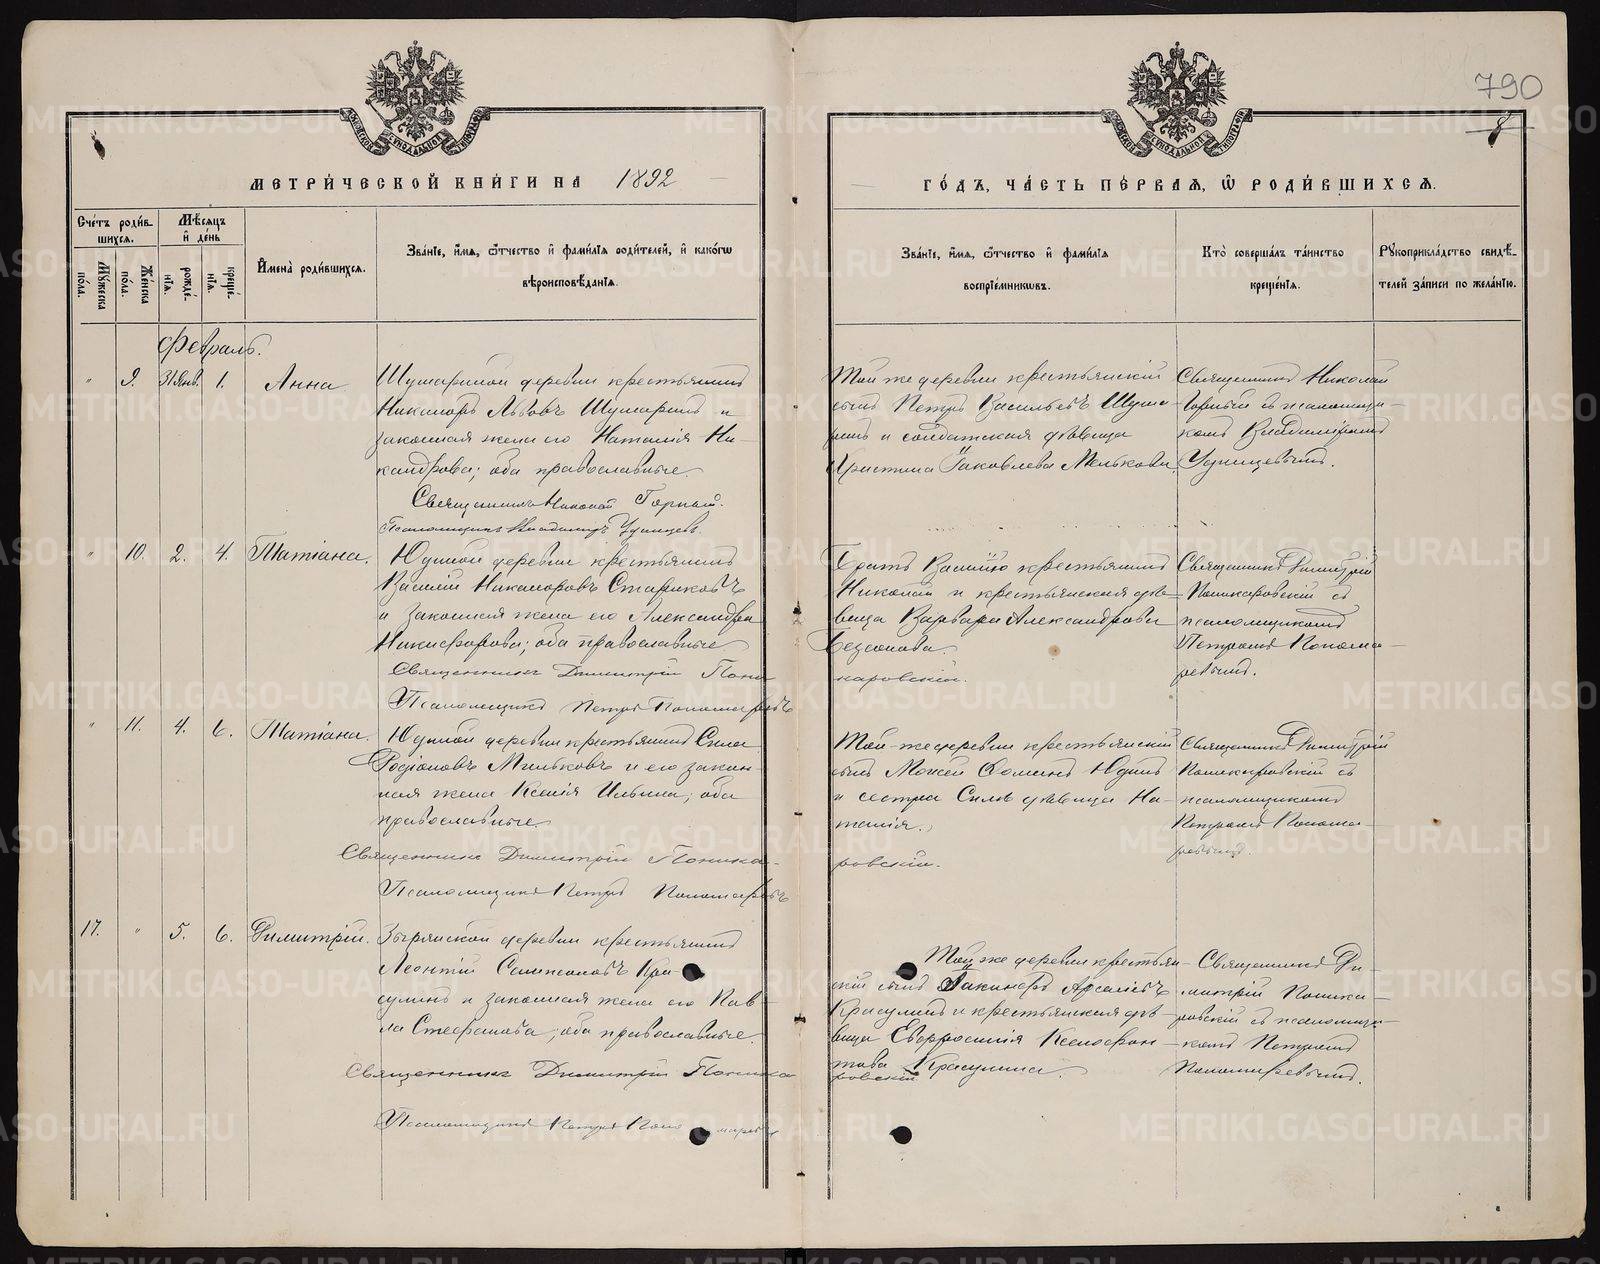 790
8
МЕТРИ́ЧЕСКОЙ КНИ́ГИ НА 1892
ГО́ДЪ, ЧА́СТЬ ПЕ́РВАЯ, Ѡ РОДИ́ВШИХСЯ.
Сче́тъ роди́вшихся.
Мѣ́сяцъ и́ де́нь
Му́жеска по́ла.
Же́нска по́ла.
рожде́нія.
креще́нія.
И́мена̀ роди́вшихся.
Зва́нїе, и́мя, ѻ́тчество и́ фами́лїя роди́телей, и́ како́гѡ
вѣроисповѣ́данїя.
Зва́нїе, и́мя, ѻ́тчество и́ фами́лїя
воспрїе́мникѡвъ.
Кто̀ соверша́лъ та́инство
креще́нїя.
Рукоприкла́дство свидѣ́-
телей за́писи по жела́нїю.
Февраль.
" 9. 31 Янв. 1. Анна
Шумариной деревни крестьянинъ
Никаноръ Львовъ Шумаринъ и
законная жена его Наталія Ни-
кандрова; оба православные.
Священникъ Николай Горный.
Псаломщикъ Владимиръ Удинцевъ.
Той же деревни крестьянскій
сынъ Петръ Васильевъ Шума-
ринъ и солдатская дѣвица
Христина Іаковлева Мелькова.
Священникъ Николай
Горный съ псаломщи-
комъ Владимиромъ
Удинцевымъ.
" 10. 2. 4. Татіана.
Юдиной деревни крестьянинъ
Василій Никаноровъ Стариковъ
и законная жена его Александра
Никифорова; оба православные
Священникъ Димитрій Пони
Псаломщикъ Петръ Пономаревъ
Братъ Василію крестьянинъ
Николай и крестьянская дѣ-
вица Варвара Александрова
каровскій.
Священникъ Димитрій
Поникаровскій съ
псаломщикомъ
Петромъ Понома-
ревымъ.
" 11. 4. 6. Татіана.
Юдиной деревни крестьянинъ Сила
Родіоновъ Мильковъ и его закон-
ная жена Ксенія Ильина; оба
православные.
Священникъ Димитрій Поника-
Псаломщикъ Петръ Пономаревъ
Той-же деревни крестьянскій
сынъ Моисей Ѳоминъ Юдинъ
и сестра Силѣ дѣвица На-
талія.
ровскій.
Священникъ Димитрій
Поникаровскій съ
псаломщикомъ
Петромъ Понома-
ревымъ.
17. " 5. 6. Димитрій.
Зырянской деревни крестьянинъ
Леонтій Семионовъ Кра-
сулинъ и законная жена его Пав-
ла Стефанова; оба православные.
Священникъ Димитрій Поника
Псаломщикъ Петръ Поно маревъ
Той же деревни крестьян-
скій сынъ Іакинфъ Арсеніевъ
Красулинъ и крестьянская дѣ-
вица Евфросинія Ксенофон-
това Красулина.
ровскій
Священникъ Ди-
митрій Поника-
ровскій съ псаломщи-
комъ Петромъ
Пономаревымъ.
METRIKI.GASO-URAL.RU